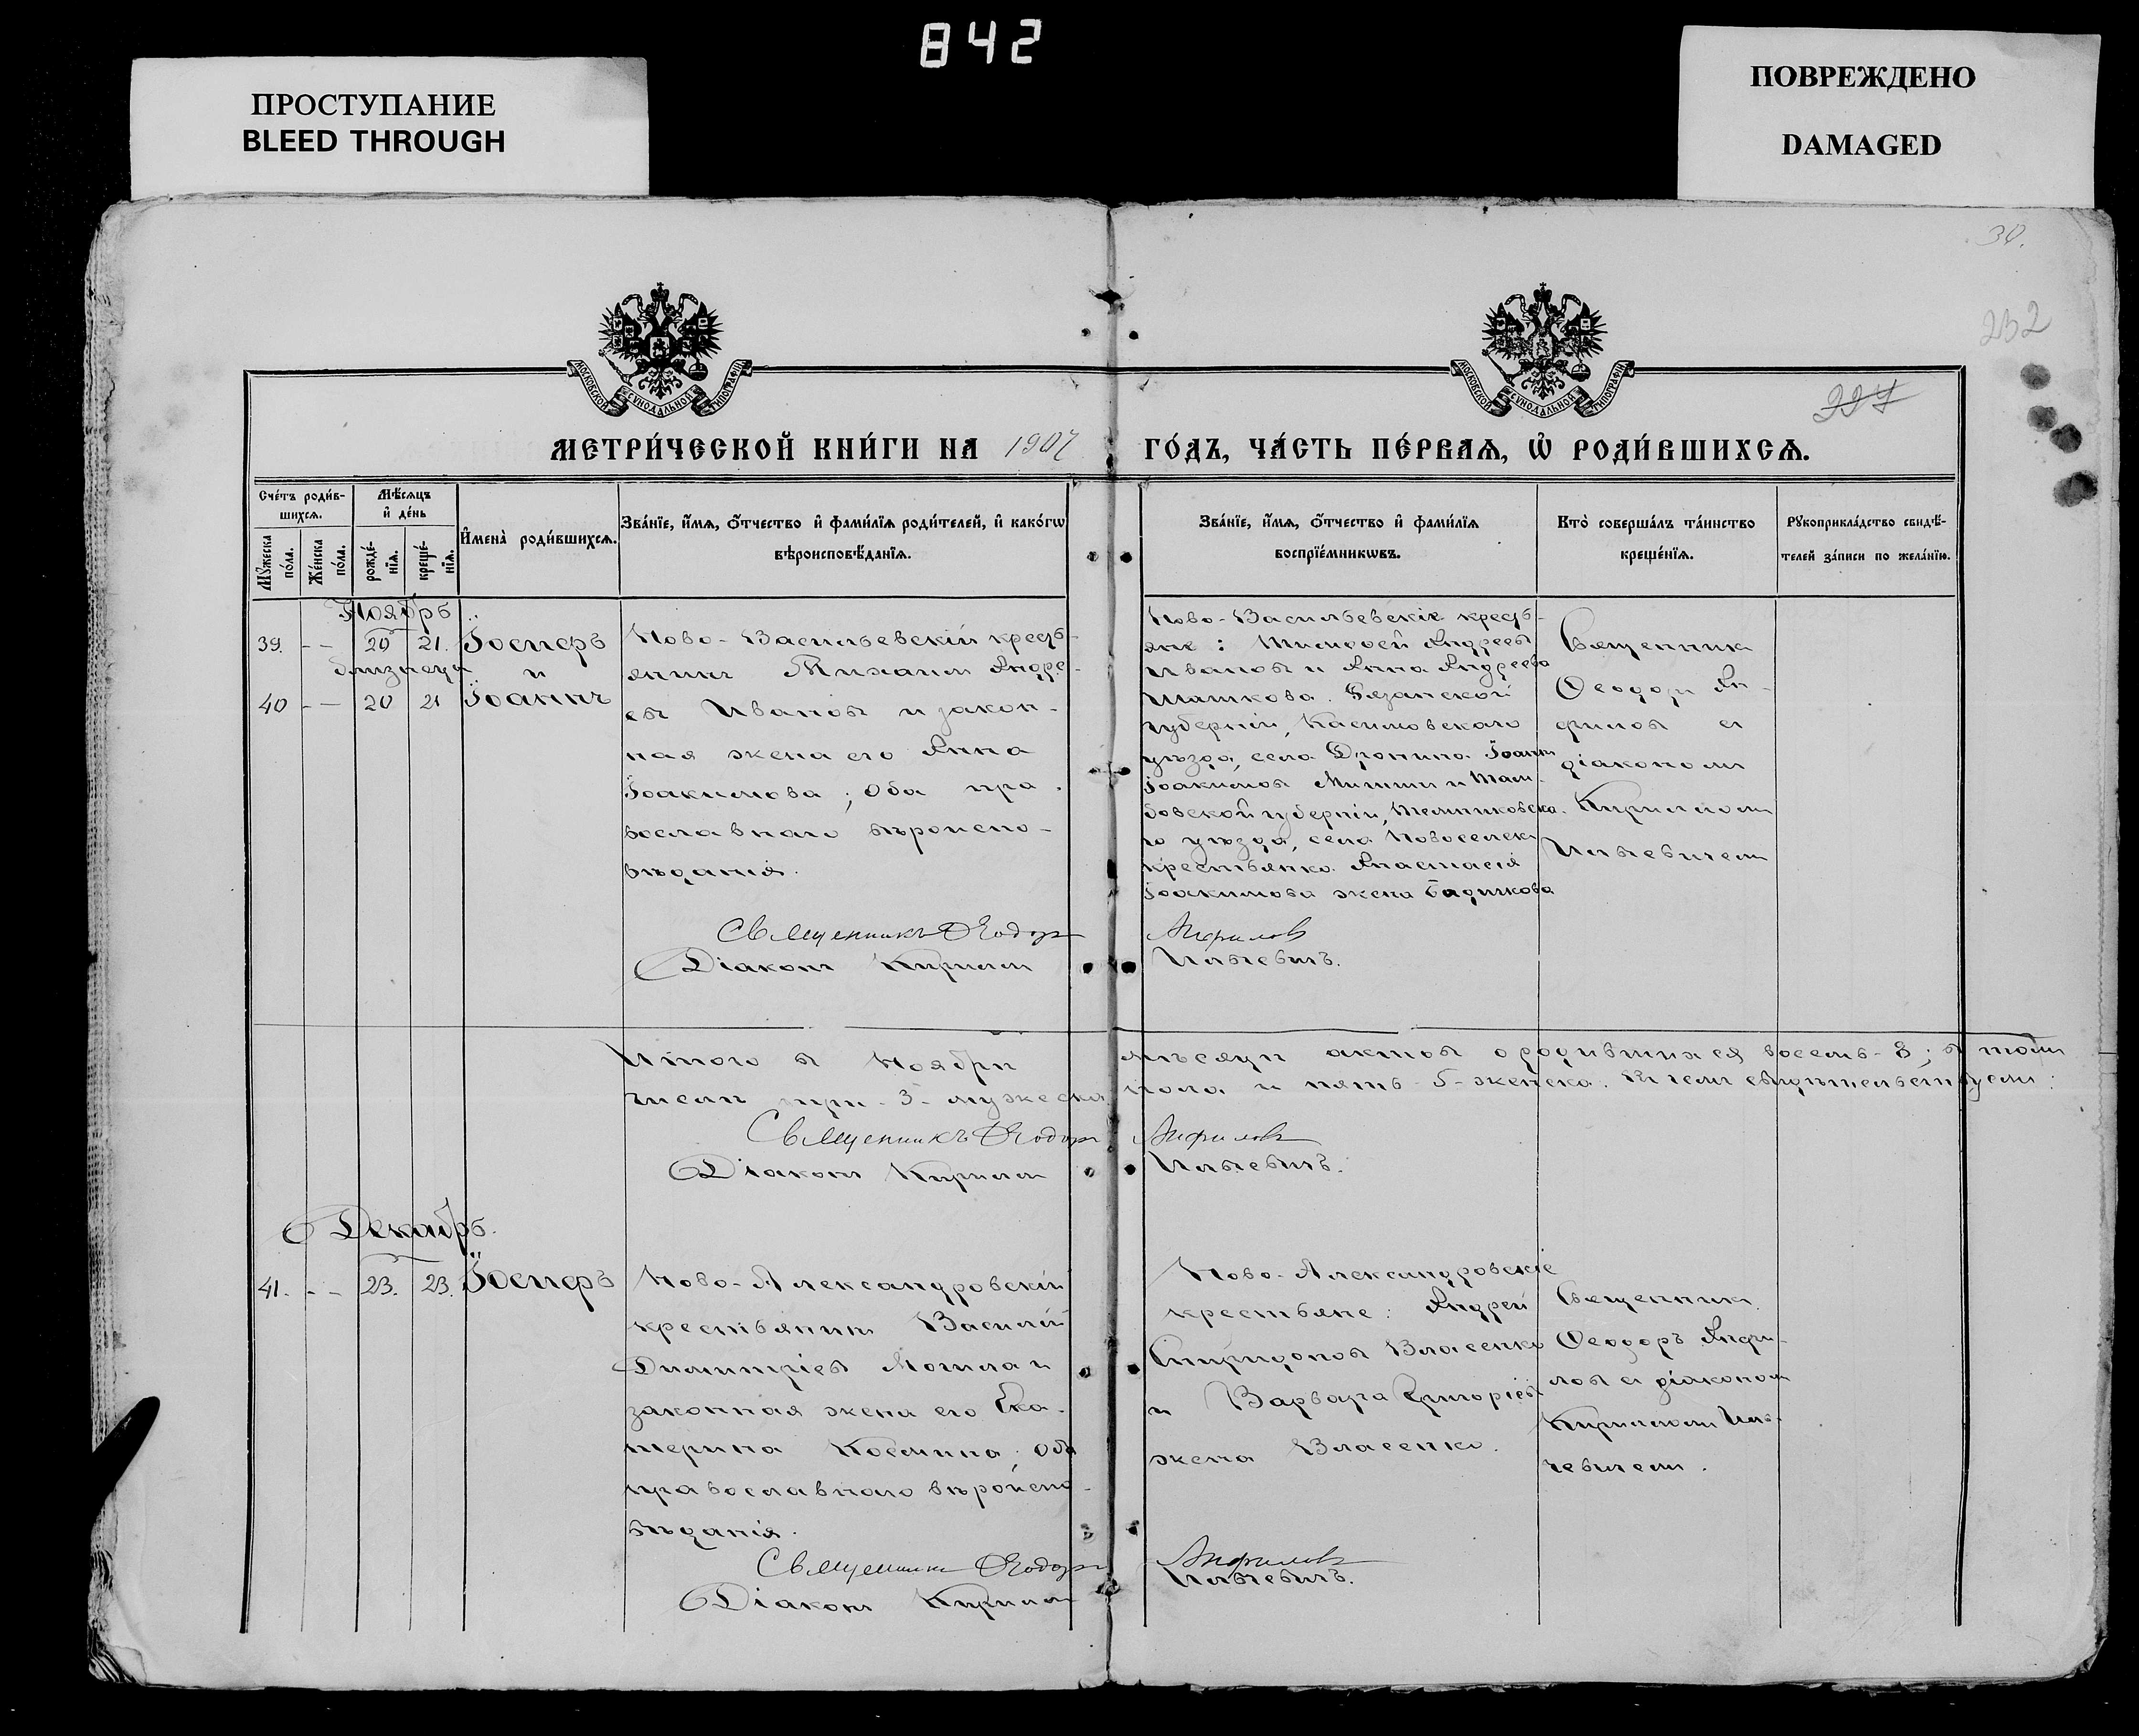 842
ПРОСТУПАНИЕ
BLEED THROUGH
ПОВРЕЖДЕНО
DAMAGED
30.
232
227
МОСКОВСКОЙ СѴНОДАЛЬНОЙ ТИПОГРАФІИ
МОСКОВСКОЙ СѴНОДАЛЬНОЙ ТИПОГРАФІИ
МЕТРИ́ЧЕСКОЙ КНИ́ГИ НА 1907 ГО́ДЪ, ЧА́СТЬ ПЕ́РВАѦ, Ѡ҆ РОДИ́ВШИХСѦ.
Сче́тъ роди́в-
шихсѧ.
Мꙋ́жеска по́ла.
Же́нска по́ла.
Мѣ́сѧцъ
и҆ де́нь
рожде́-
нїѧ.
креще́-
нїѧ.
И҆мена̀ роди́вшихсѧ.
Зва́нїе, и҆́мѧ, ѻ҆́тчество и҆ фами́лїѧ роди́телей, и҆ како́гѡ
вѣроисповѣ́данїѧ.
Зва́нїе, и҆́мѧ, ѻ҆́тчество и҆ фами́лїѧ
воспрїе́мникѡвъ.
Кто̀ соверша́лъ та́инство
креще́нїѧ.
Рꙋкоприкла́дство свидѣ́-
телей за́писи по жела́нїю.
Ноябрь
39. - - 20 21. Іосифъ
близнецы и
40 - - 20 21 Іоаннъ
Ново-Васильевскій кресть-
янинъ Михаилъ Андре-
евъ Ивановъ и закон-
ная жена его Анна
Іоакимова; оба пра-
вославнаго вѣроиспо-
вѣданія.
Ново-Васильевскіе кресть-
яне: Тимоѳей Андреевъ
Ивановъ и Анна Андреева
Шашкова. Рязанской
губерніи, Касимовскаго
уѣзда, села Дронина Іоаннъ
Іоакимовъ Митинъ и Там-
бовской губерніи, Темниковска-
го уѣзда, села Новоселокъ
крестьянка Анастасія
Іоакимова жена Бадичкова
Священникъ
Ѳеодоръ Ан-
филовъ съ
діакономъ
Кирилломъ
Ильевичемъ
Священникъ Ѳеодоръ Анфиловъ
Діаконъ Кириллъ Ильевичъ.
Итого въ Ноябрѣ мѣсяцѣ актовъ о родившихся восемь-8; въ томъ
числѣ три-3-мужеска пола и пять-5-женска. Въ чемъ свидѣтельствуемъ:
Священникъ Ѳеодоръ Анфиловъ
Діаконъ Кириллъ Ильевичъ.
Декабрь.
41. - - 23. 23. Іосифъ
Ново-Александровскій
крестьянинъ Василій
Димитріевъ Могила и
законная жена его Ека-
терина Космина; оба
православнаго вѣроиспо-
вѣданія.
Ново-Александровскіе
крестьяне: Андрей
Спиридоновъ Власенко
и Варвара Григорьева
жена Власенко.
Священникъ
Ѳеодоръ Анфи-
ловъ съ діакономъ
Кирилломъ Иль-
евичемъ.
Священникъ Ѳеодоръ Анфиловъ
Діаконъ Кириллъ Ильевичъ.